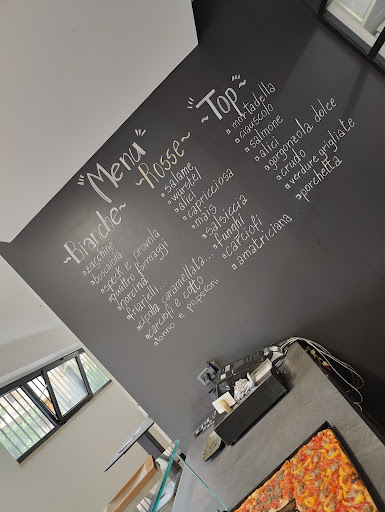 "Menu"
~Bianche~
zucchine
boscaiola
speck e provola
quattro formaggi
norcina
friarielli...
cipolla caramellata...
carciofi e cotto
tonno e peperoni
~Rosse~
salame
wurstel
alici
capricciosa
mais
salsiccia
funghi
carciofi
amatriciana
~"Top"~
mortadella
ciauscolo
salmone
alici
gorgonzola dolce
crudo
verdure grigliate
porchetta